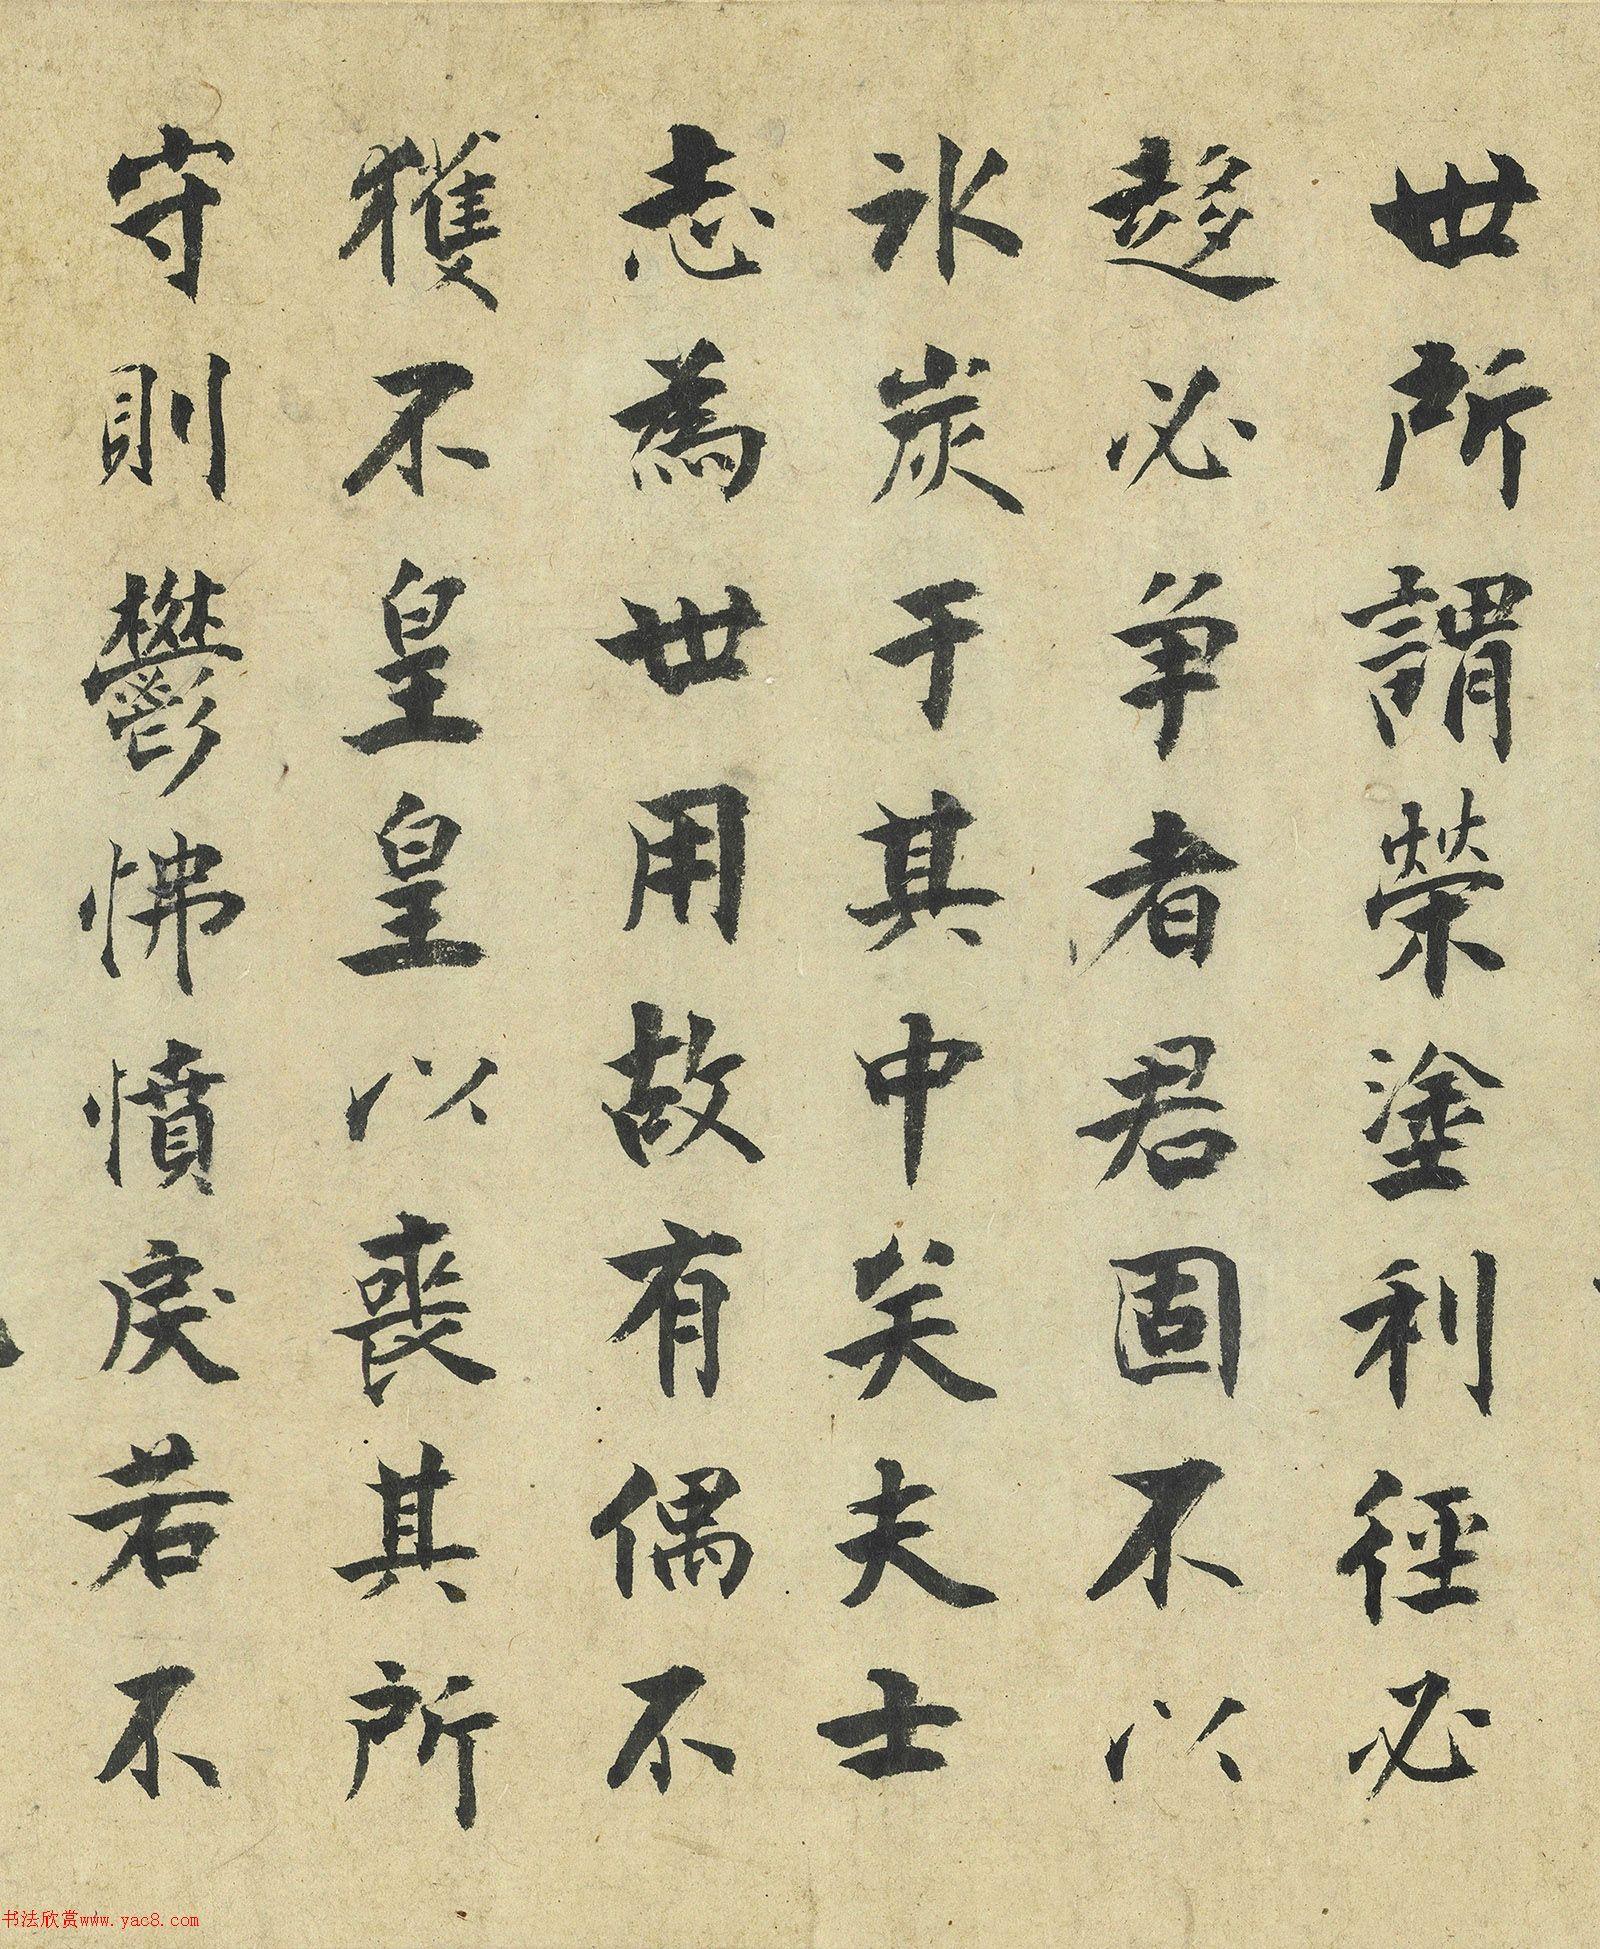 世所謂榮塗利徑必
趍必争者君固不以
氷炭于其中矣夫士
志為世用故有偶不
獲不皇皇以喪其所
守則鬱怫憤戾若不
书法欣赏www.yac8.com